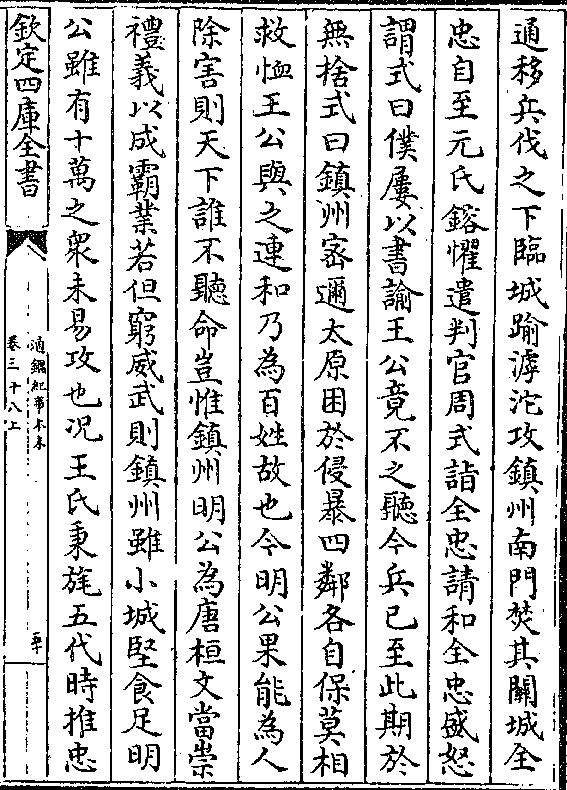 通移兵伐之下臨城踰滹沱攻鎮州南門焚其關城全
忠自至元氏鎔懼遣判官周式詣全忠請和全忠盛怒
謂式曰僕屢以書諭王公竟不之聽今兵已至此期於
無捨式曰鎮州密邇太原困於侵暴四鄰各自保莫相
救恤王公與之連和乃為百姓故也今明公果能為人
除害則天下誰不聽命豈惟鎮州明公為唐桓文當崇
禮義以成霸業若但窮威武則鎮州雖小城堅食足明
公雖有十萬之衆未易攻也況王氏秉旄五代時推忠
欽定四庫全書
通鑑紀事本末
卷三十八上